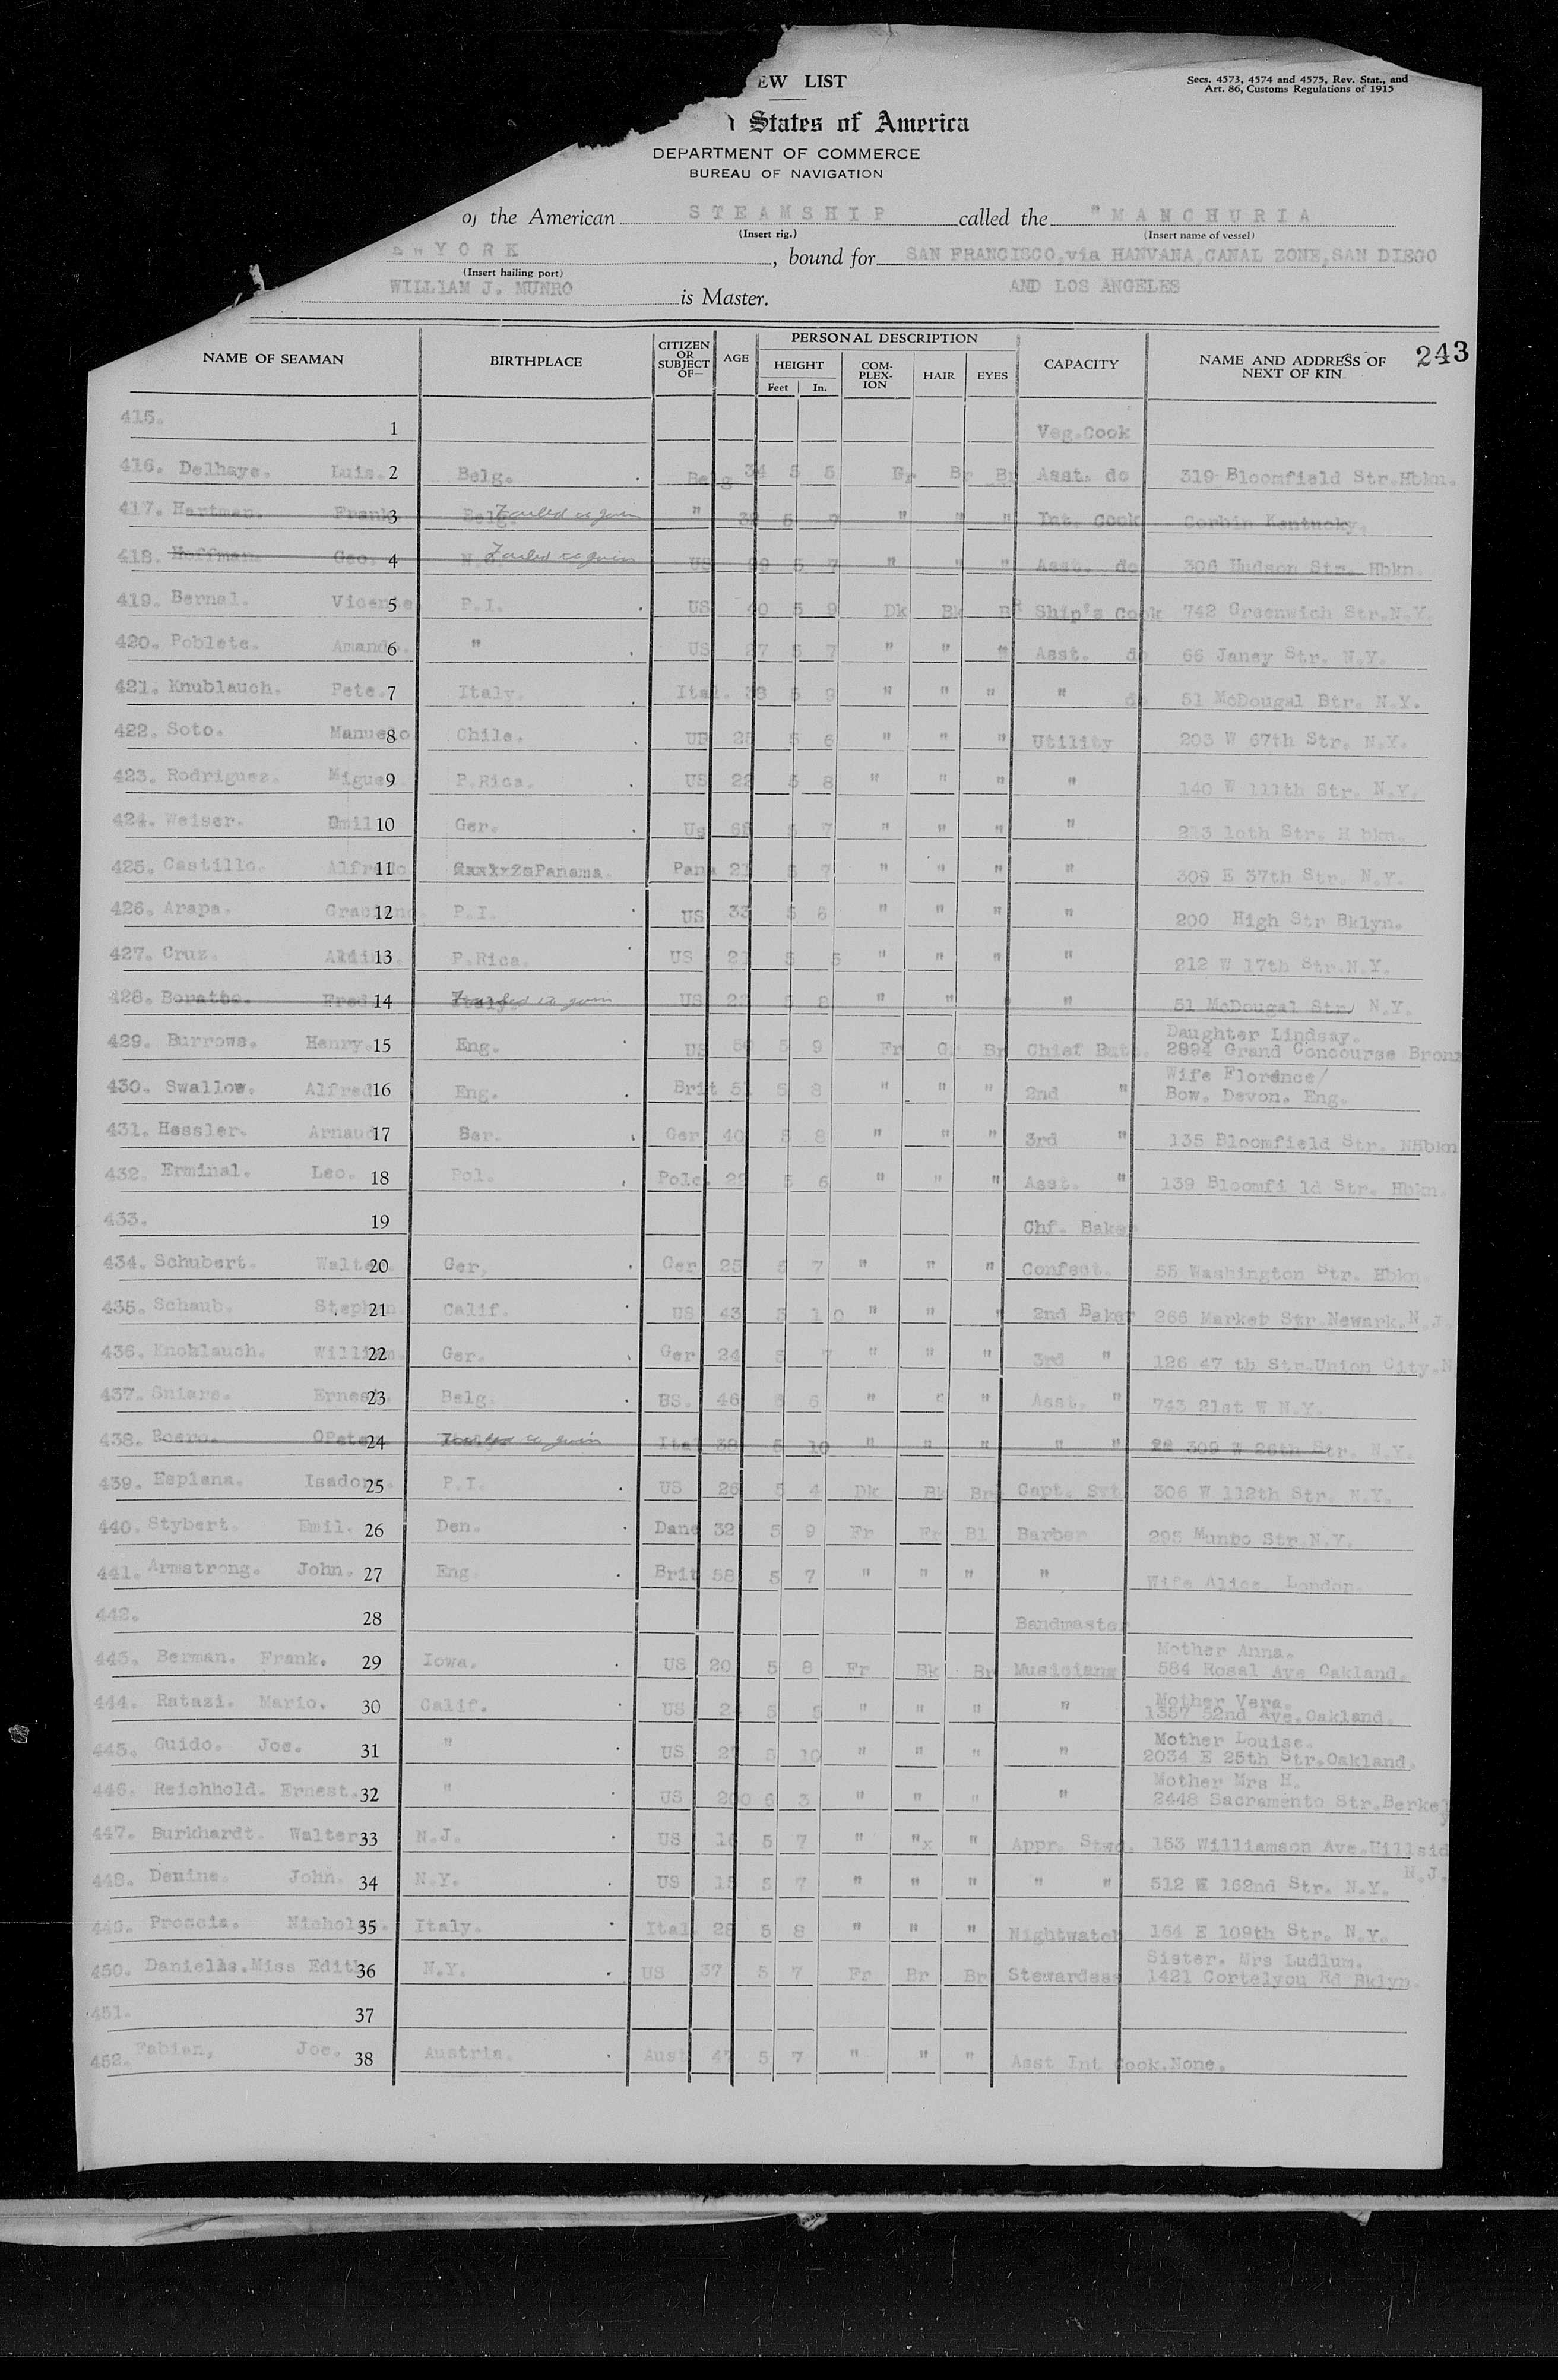 EW LIST
Secs. 4573, 4574 and 4575, Rev. Stat., and
Art. 86, Customs Regulations of 1915
States of America
DEPARTMENT OF COMMERCE
BUREAU OF NAVIGATION
of the American STEAMSHIP called the "MANCHURIA
(Insert rig.) (Insert name of vessel)
YORK, bound for SAN FRANCISCO, via HANVANA, CANAL ZONE, SAN DIEGO
(Insert hailing port)
WILLIAM J. MUNRO is Master. AND LOS ANGELES
243
NAME OF SEAMAN BIRTHPLACE CITIZEN OR SUBJECT OF— AGE PERSONAL DESCRIPTION CAPACITY NAME AND ADDRESS OF NEXT OF KIN
HEIGHT COM-PLEX-ION HAIR EYES
Feet In.
415. 1 Veg.Cook
416. Delhaye. Luis. 2 Belg. Belg 34 5 5 Fr Br Br Asst. do 319 Bloomfield Str.Hbkn.
417. Hartman. Frank 3 Belg. Failed to join " 5 " " " Int. Cook Corbin Kentucky.
418. Hoffman Geo. 4 Failed to join US 5 7 " " " Asst. do 306 Hudson Str. Hbkn.
419. Bernal. Vicente 5 P.I. US 40 5 9 Dk Bk Br Ship's Cook 742 Greenwich Str.N.Y.
420. Poblete. Amando. 6 " US 27 5 7 " " " Asst. do 66 Janey Str. N.Y.
421. Knublauch. Pete. 7 Italy. Ital. 38 5 9 " " " " do 51 McDougal Str. N.Y.
422. Soto. Manuelo 8 Chile. 5 6 " " " Utility 203 W 67th Str. N.Y.
423. Rodriguez. Migue 9 P.Rica. US 22 5 8 " " " " 140 W 111th Str. N.Y.
424. Weiser. Emil 10 Ger. Us 5 7 " " " " 213 10th Str. H bkn.
425. Castillo. Alfredo 11 Panama. Pana 21 5 7 " " " " 309 E 37th Str. N.Y.
426. Arapa. 12 P.I. US 33 5 6 " " " " 200 High Str Bklyn.
427. Cruz. 13 P.Rica. US 21 5 5 " " " " 212 W 17th Str.N.Y.
428. Boratto. Fred 14 Italy. Failed to join US 5 8 " " " 51 McDougal Str/ N.Y.
429. Burrows. Henry. 15 Eng. US 5 9 Fr G. Br Chief Butc. Daughter Lindsay.
2894 Grand Concourse Bronx
430. Swallow. Alfred 16 Eng. Brit 5 8 " " " 2nd " Wife Florence/
Bow. Devon. Eng.
431. Hessler. Arnaud 17 Ger. Ger 40 5 8 " " " 3rd " 135 Bloomfield Str. NHbkn
432. Erminal. Leo. 18 Pol. Pole. 22 5 6 " " " Asst. " 139 Bloomfi ld Str. Hbkn.
433. 19 Chf. Baker
434. Schubert. Walter. 20 Ger, Ger 25 5 7 " " " Confect. 55 Washington Str. Hbkn.
435. Schaub. Stephen. 21 Calif. US 43 5 10 " " " 2nd Baker 266 Market Str.Newark.N.J.
436. Knoblauch. William. 22 Ger. Ger 24 5 7 " " " 3rd " 126 47 th Str.Union City.N
437. Sniars. Ernest. 23 Belg. BS. 46 5 6 " " " Asst. " 743 21st W N.Y.
438. Roero. OPete 24 Failed to join Ital 38 5 10 " " " " " 309 W 26th Str. N.Y.
439. Esplana. Isadore. 25 P.I. US 26 5 4 Dk Bk Br Capt. Svt. 306 W 112th Str. N.Y.
440. Stybert. Emil. 26 Den. Dane 32 5 9 Fr Fr Bl Barber 295 Munro Str.N.Y.
441. Armstrong. John. 27 Eng. Brit 58 5 7 " " " " Wife Alice. London.
442. 28 Bandmaster
443. Berman. Frank. 29 Iowa. US 20 5 8 Fr Bk Br Musicians Mother Anna.
584 Rosal Ave Oakland.
444. Ratazi. Mario. 30 Calif. US 5 " " " " Mother Vera.
1357 52nd Ave.Oakland.
445. Guido. Joe. 31 " US 27 5 10 " " " " Mother Louise.
2034 E 25th Str.Oakland.
446. Reichhold. Ernest. 32 " US 200 6 3 " " " " Mother Mrs H.
2448 Sacramento Str.Berkely
447. Burkhardt. Walter 33 N.J. US 16 5 7 " "x " Appr. Stwd. 153 Williamson Ave.Hillsid
N.J.
448. Denine. John. 34 N.Y. US 15 5 7 " " " " " 512 W 162nd Str. N.Y.
449. Proscia. Nicholas. 35 Italy. Ital 28 5 8 " " " Nightwatch 164 E 109th Str. N.Y.
450. Daniells.Miss Edith 36 N.Y. US 37 5 7 Fr Br Br Stewardess Sister. Mrs Ludlum.
1421 Cortelyou Rd Bklyn.
451. 37
452. Fabian, Joe. 38 Austria. Aust 47 5 7 " " " Asst Int Cook.None.